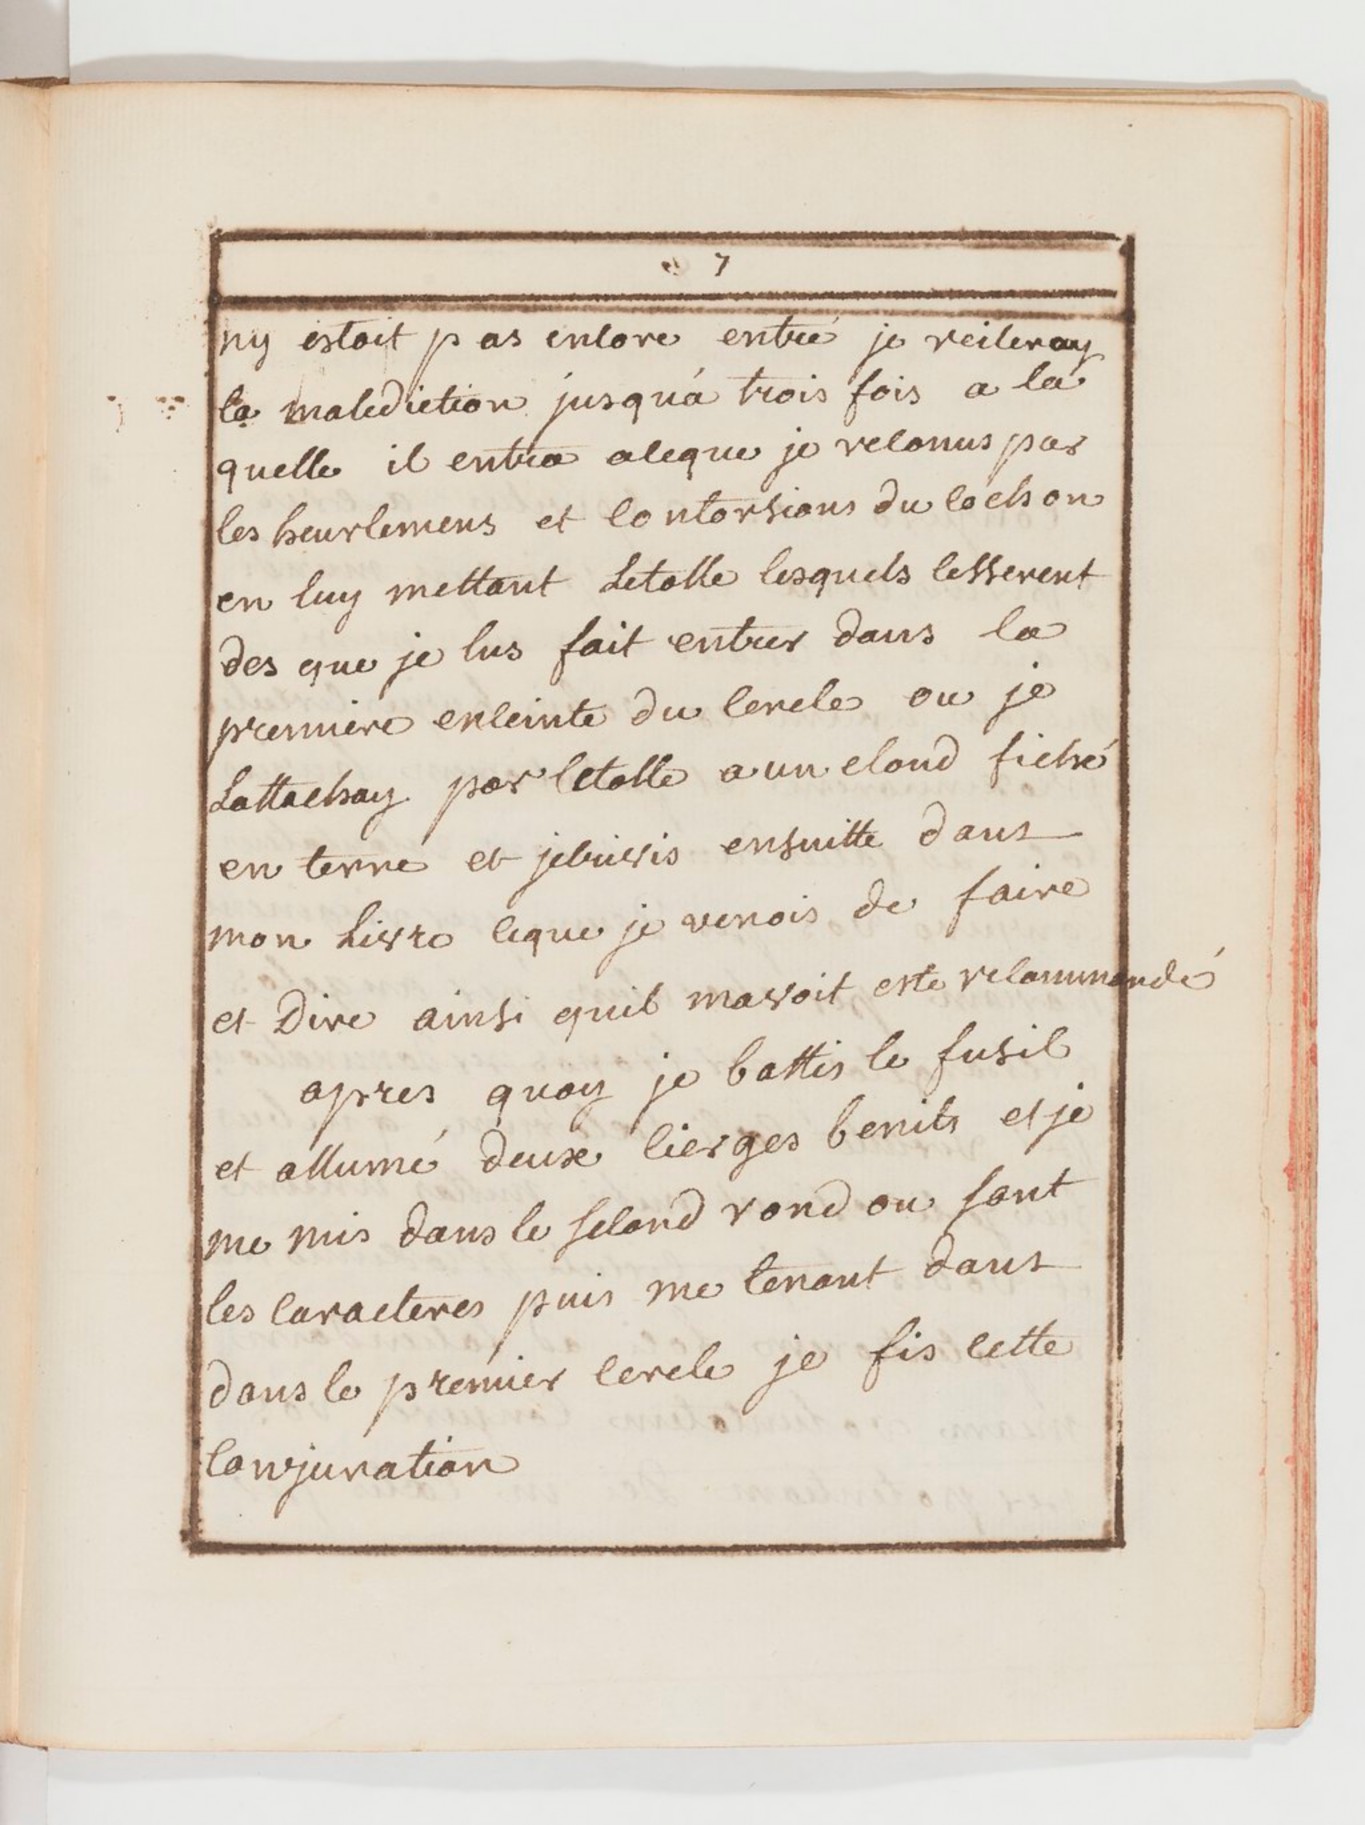 7
ny estoit pas encore entré je reiteray
la malediction jusqu'á trois fois a la
quelle il entra aceque je reconus par
les heurlemens et contorsions du cochon
en luy mettant Letolle lesquels cesserent
des que je lus fait entrer dans la
premiere enceinte du cercle ou je
Lattachay par letolle a un cloud fiché
en terre et jecrivis ensuitte dans
mon Livre ceque je venois de faire
et Dire ainsi quil mavoit este recommandé
apres quoy je battis le fusil
et allumé deux cierges benits et je
me mis dans le second rond ou sont
les caracteres puis me tenant dans
dans le premier cercle je fis cette
Conjuration